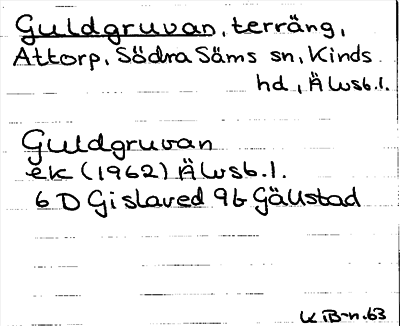 Guldgruvan, terräng,
Attorp, Södra Säms sn, Kinds
hd, Älvsb.l.
Guldgruvan
ek (1962) Älvsb.l.
6 D Gislaved 9b Gällstad
K.B-n.63